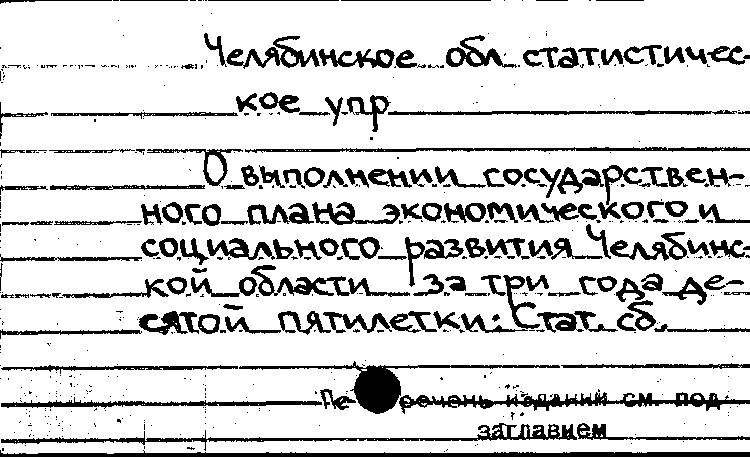 Челябинское обл статистичес-
кое упр
О выполнении государствен-
ного плана экономического и
социального развития Челябинс-
кой области за три года де-
сятой пятилетки: Стат. сб.
Перечень изданий см. под
заглавием